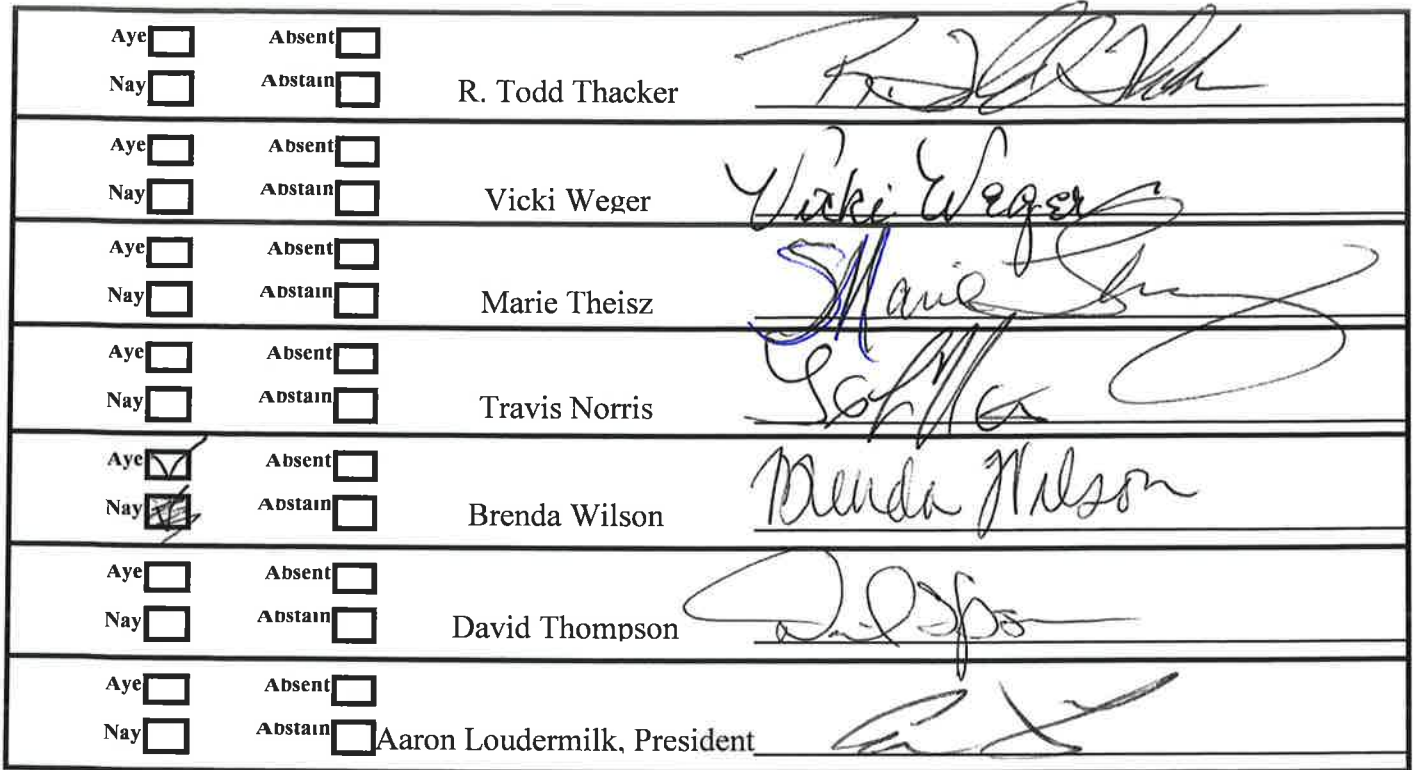 Aye Absent
Nay Abstain R. Todd Thacker
Aye Absent
Nay Abstain Vicki Weger Vicki Weger
Aye Absent
Nay Abstain Marie Theisz Marie
Aye Absent
Nay Abstain Travis Norris
Aye Absent
Nay Abstain Brenda Wilson Brenda Wilson
Aye Absent
Nay Abstain David Thompson
Aye Absent
Nay Abstain Aaron Loudermilk, President